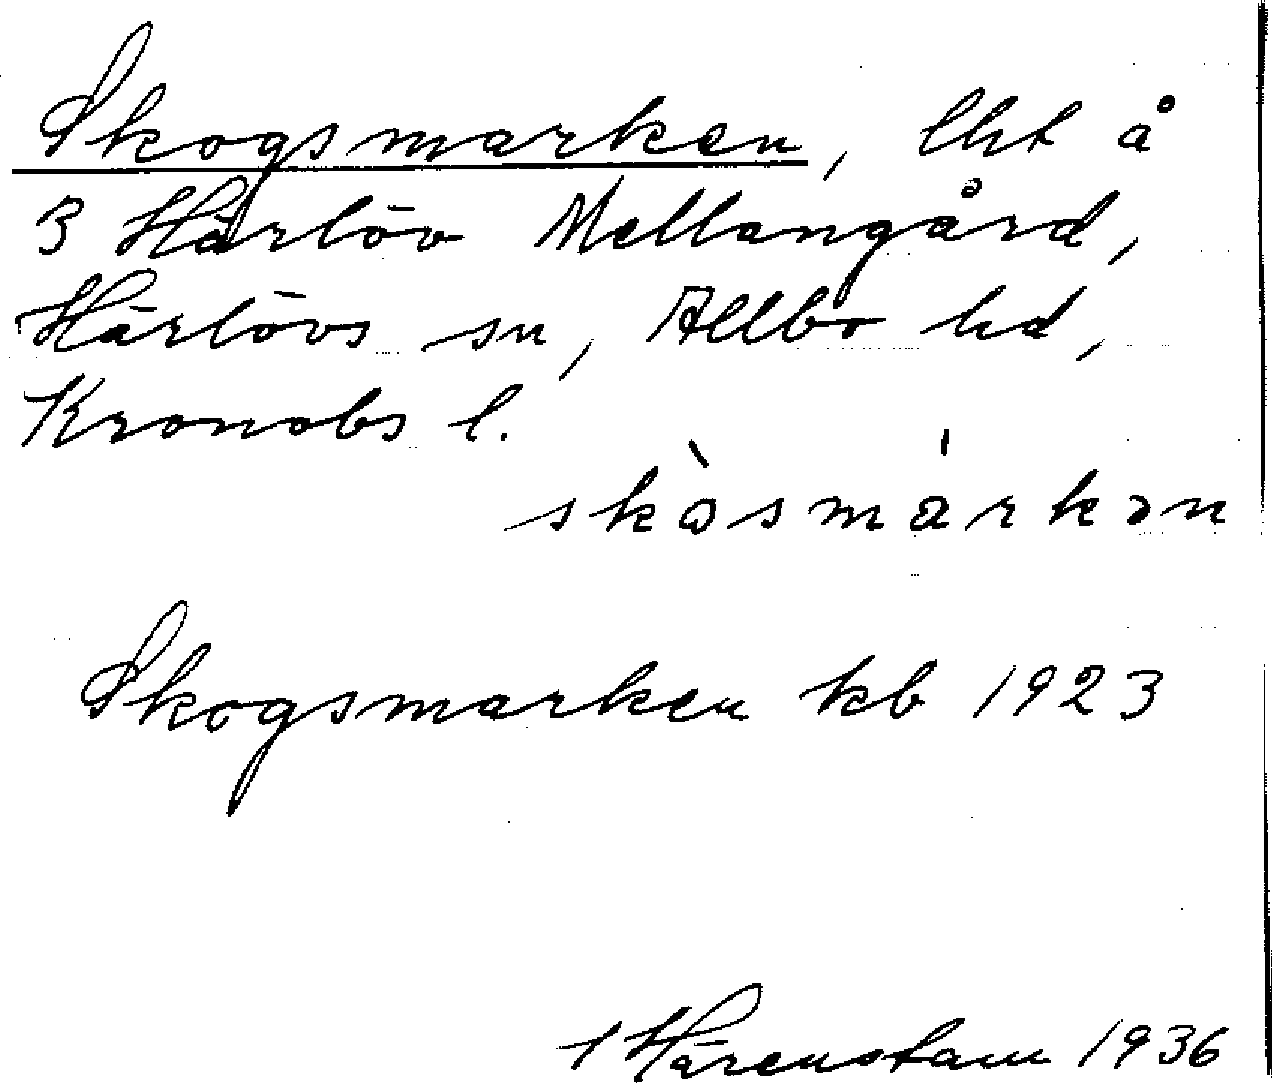 Skogsmarken, lht å
3 Härlöv Mellangård,
Härlövs sn, Allbo hd,
Kronobs l.
skòsmárkən
Skogsmarken kb 1923
Härenstam 1936